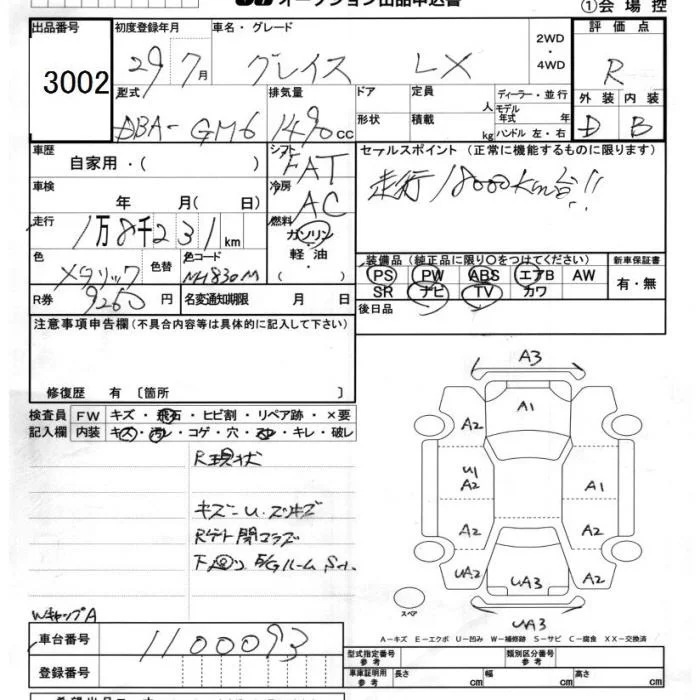 オークション出品申込書
①会場控
出品番号 初度登録年月 車名・グレード 評価点
3002 29 7月 グレイス LX 2WD・4WD R
型式 排気量 ドア 定員 人 ディーラー・並行 外装 内装
DBA-GM6 1490cc 形状 積載 kg モデル年式 年 ハンドル 左・右 D B
車歴 自家用・( ) シフト FAT セールスポイント (正常に機能するものに限ります)
車検 年 月( 日) 冷房 AC 走行18000Km台!!
走行 1万8千231km 燃料 ガソリン・軽油・( )
色 メタリック 色替 色コード NH830M
装備品(純正品に限り○をつけてください) 新車保証書
PS PW ABS エアB AW 有・無
SR ナビ TV カワ
R券 9260円 名変通知期限 月 日 後日品
注意事項申告欄(不具合内容等は具体的に記入して下さい)
修復歴 有 〔箇所 〕
検査員 FW キズ・飛石・ヒビ割・リペア跡・×要
記入欄 内装 キズ・汚レ・コゲ・穴・スレ・キレ・破レ
R現状
キズ-U.スリキズ
Rゲート閉
E/Gルーム
WキャップA
A3
A1
A2 A2
U1
A2 A1
A2 A2
UA2 UA3 A2
スペア UA3
A-キズ E-エクボ U-凹み W-補修跡 S-サビ C-腐食 XX-交換済
車台番号 1100093
型式指定番号 参考 類別区分番号 参考
登録番号
車庫証明用 参考 長さ cm 幅 cm 高さ cm